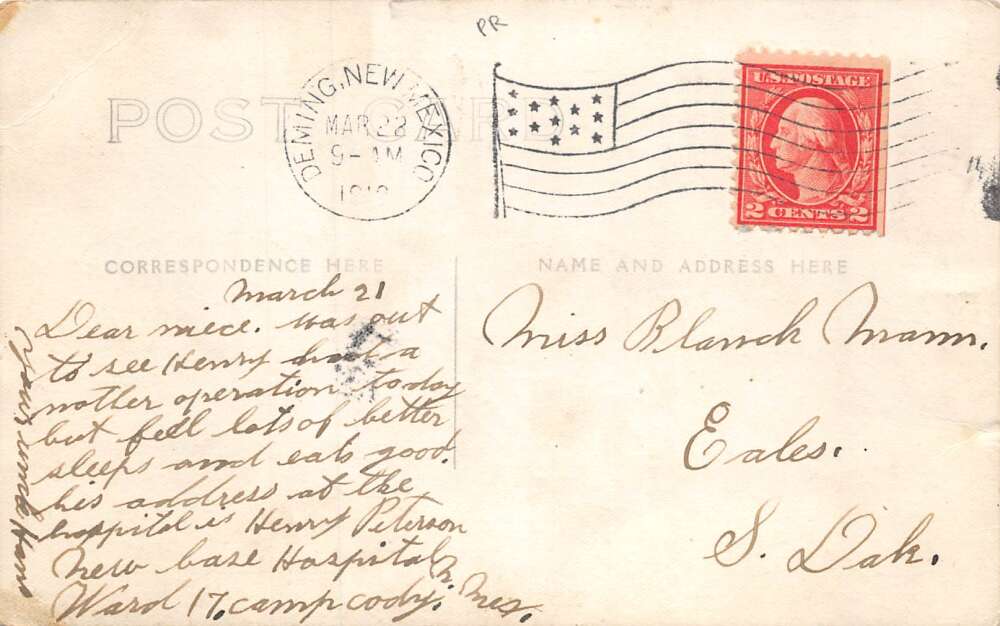 PR
POST CARD
DEMING, NEW MEXICO
MAR 22
9-AM
1918
U.S. POSTAGE
2 CENTS 2
CORRESPONDENCE HERE
NAME AND ADDRESS HERE
March 21
Dear niece. was out
to see Henry had a
nother operation today
but feel lots of better
sleeps and eats good.
his address at the
hoppital is Henry Peterson
New base Hospital
Ward 17, camp cody. N. Mex.
your unck Hans
Miss Blanck Mann.
Eales.
S. Dak.